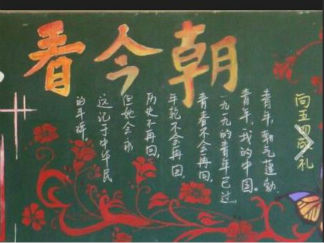 看今朝
向五四敬礼
青年,朝气蓬勃
青年,我的中国。
一九一九的青年已远
青春不会再回,
年轮不会再回,
历史不再回,
但她会永
远记于中华民
的丰碑